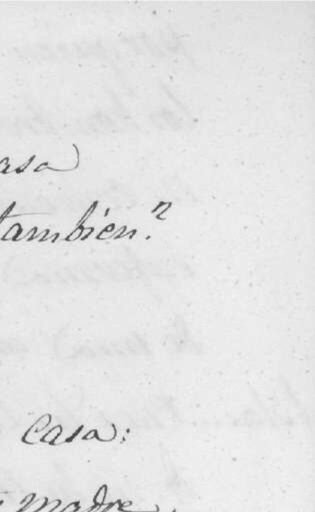 asa
también?
casa:
madre,